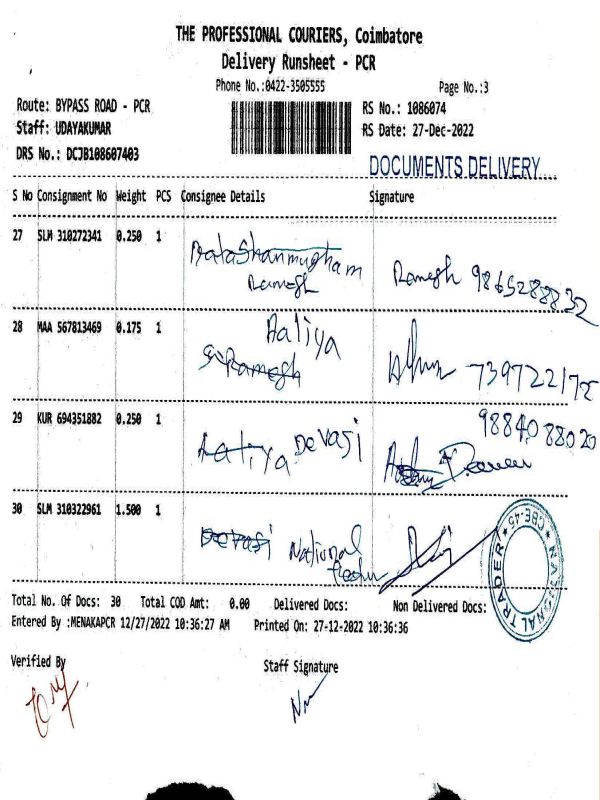 THE PROFESSIONAL COURIERS, Coimbatore
Delivery Runsheet - PCR
Phone No.:0422-3505555 Page No.:3
Route: BYPASS ROAD - PCR RS No.: 1086074
Staff: UDAYAKUMAR RS Date: 27-Dec-2022
DRS No.: DCJB108607403
DOCUMENTS DELIVERY
S No Consignment No Weight PCS Consignee Details Signature
27 SLM 310272341 0.250 1
Balashanmugham
Ramesh Ramesh 9865288832
28 MAA 567813469 0.175 1 Aaliya
Ramesh 739722172
29 KUR 694351882 0.250 1 9884088020
Aaliya Devasi
30 SLM 310322961 1.500 1
Devasi National
NATIONAL TRADER CBE-45
Total No. Of Docs: 30 Total COD Amt: 0.00 Delivered Docs: Non Delivered Docs:
Entered By :MENAKAPCR 12/27/2022 10:36:27 AM Printed On: 27-12-2022 10:36:36
Verified By Staff Signature